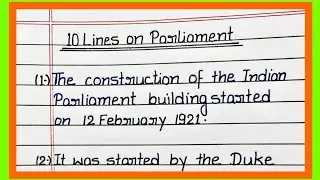 10 Lines on Parliament
(1.) The construction of the Indian
Parliament building started
on 12 February 1921.
(2.) It was started by the Duke